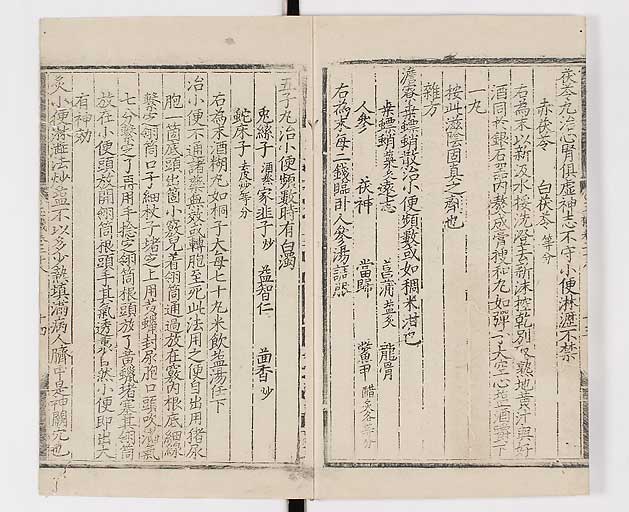 茯苓丸治心腎俱虛神志不守小便淋瀝不禁
赤茯苓 白茯苓等分
右為末以新汲水挼洗澄去新沫控乾別取熟地黃汁與好
酒同於銀石器內熬成膏搜和丸如彈子大空心塩酒嚼下
一丸
按此滋陰固真之劑也
雜方
澹寮桑螵蛸散治小便頻數或如稠米泔也
桑螵蛸 遠志 菖蒲塩炙 龍骨
人參 茯神 當歸 鱉甲醋炙各等分
右為末每二錢臨卧人參湯調服
五子丸治小便頻數時有白濁
兎絲子酒蒸 家韭子炒 益智仁 茴香炒
蛇床子去皮炒等分
右為末酒糊丸如桐子大每七十丸米飲塩湯任下
治小便不通諸藥無效或轉胞至死此法用之便自出用猪尿
胞一箇底頭出箇小竅兒着翎筒通過放在竅內根底細線
繫定翎筒口子細杖子堵定上用黃蠟封尿胞口頭吹滿氣
七分繫定了再用手捻定翎筒根頭放了黃蠟堵塞其翎筒
放在小便頭放開翎筒根頭手其氣透裏自然小便即出大
有神効
灸小便淋澀法炒塩不以多少熱填滿病人臍中是神闕穴也